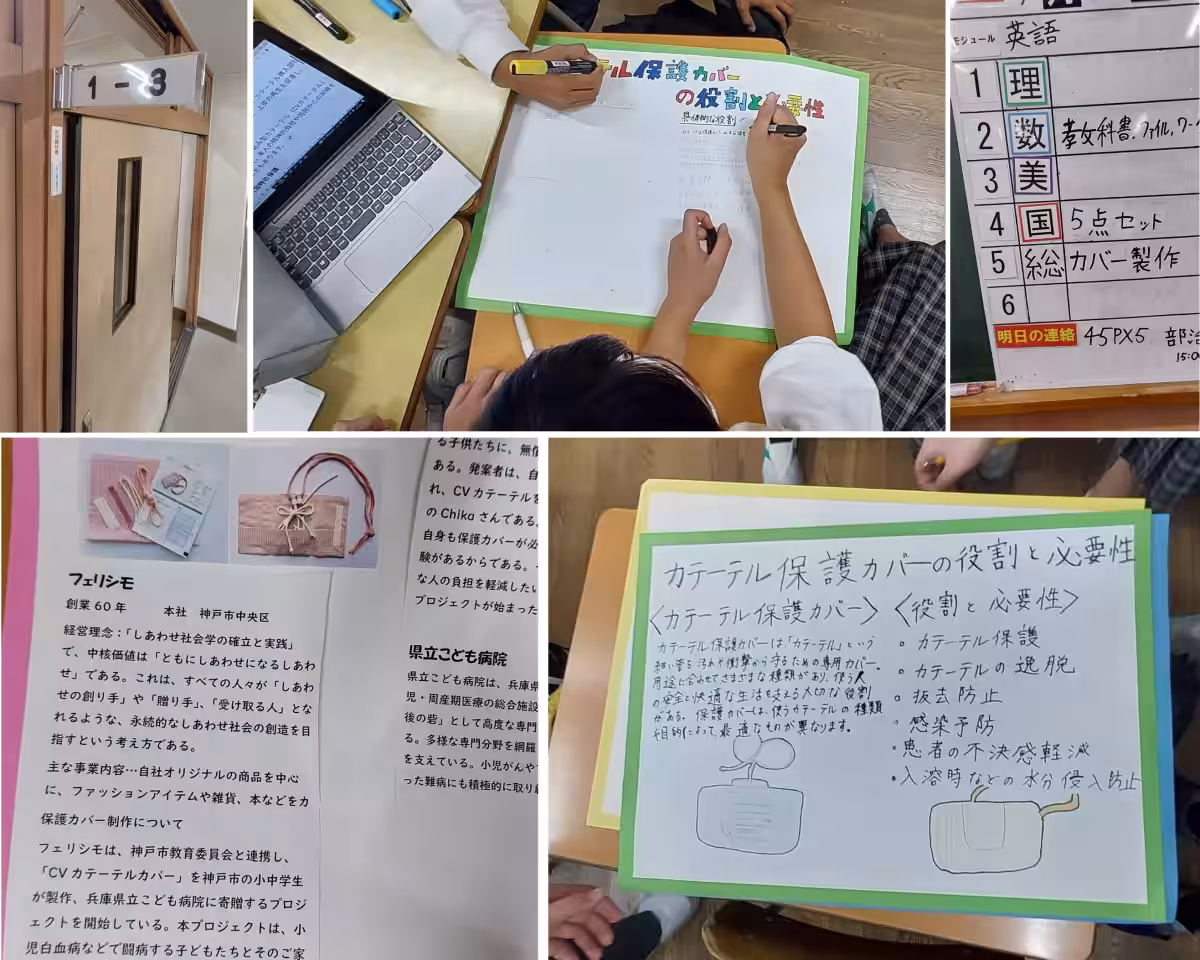 1-3
テル保護カバー
の役割と必要性
具体的な役割
モジュール 英語
1 理
2 数 孝文科書、ファイル、ワー
3 美
4 国 5点セット
5 総 カバー製作
6
明日の連絡 45PX5 部活
15:0
フェリシモ
創業60年 本社 神戸市中央区
経営理念：「しあわせ社会学の確立と実践」
で、中核価値は「ともにしあわせになるしあわ
せ」である。これは、すべての人々が「しあわ
せの創り手」や「贈り手」、「受け取る人」とな
れるような、永続的なしあわせ社会の創造を目
指すという考え方である。
主な事業内容…自社オリジナルの商品を中心
に、ファッションアイテムや雑貨、本などをカ
保護カバー制作について
フェリシモは、神戸市教育委員会と連携し、
「CVカテーテルカバー」を神戸市の小中学生
が製作、兵庫県立こども病院に寄贈するプロジ
ェクトを開始している。本プロジェクトは、小
児白血病などで闘病する子どもたちとそのご家
る子供たちに、無償
ある。発案者は、自
れ、CVカテーテルを
のChikaさんである。
自身も保護カバーが必
験があるからである。
な人の負担を軽減したい
プロジェクトが始まった
県立こども病院
県立こども病院は、兵庫県
児・周産期医療の総合施設
後の砦」として高度な専門
る。多様な専門分野を網羅
を支えている。小児がんや
った難病にも積極的に取り組
カテーテル保護カバーの役割と必要性
〈カテーテル保護カバー〉
カテーテル保護カバーは、「カテーテル」という
細い管を汚れや衝撃から守るための専用カバー。
用途に合わせてさまざまな種類があり、使う人
の安全と快適な生活を支える大切な役割
がある。保護カバーは、使うカテーテルの種類
や目的によって、最適なものが異なります。
〈役割と必要性〉
・カテーテル保護
・カテーテルの逸脱
・抜去防止
・感染予防
・患者の不決感軽減
・入溶時などの水分侵入防止